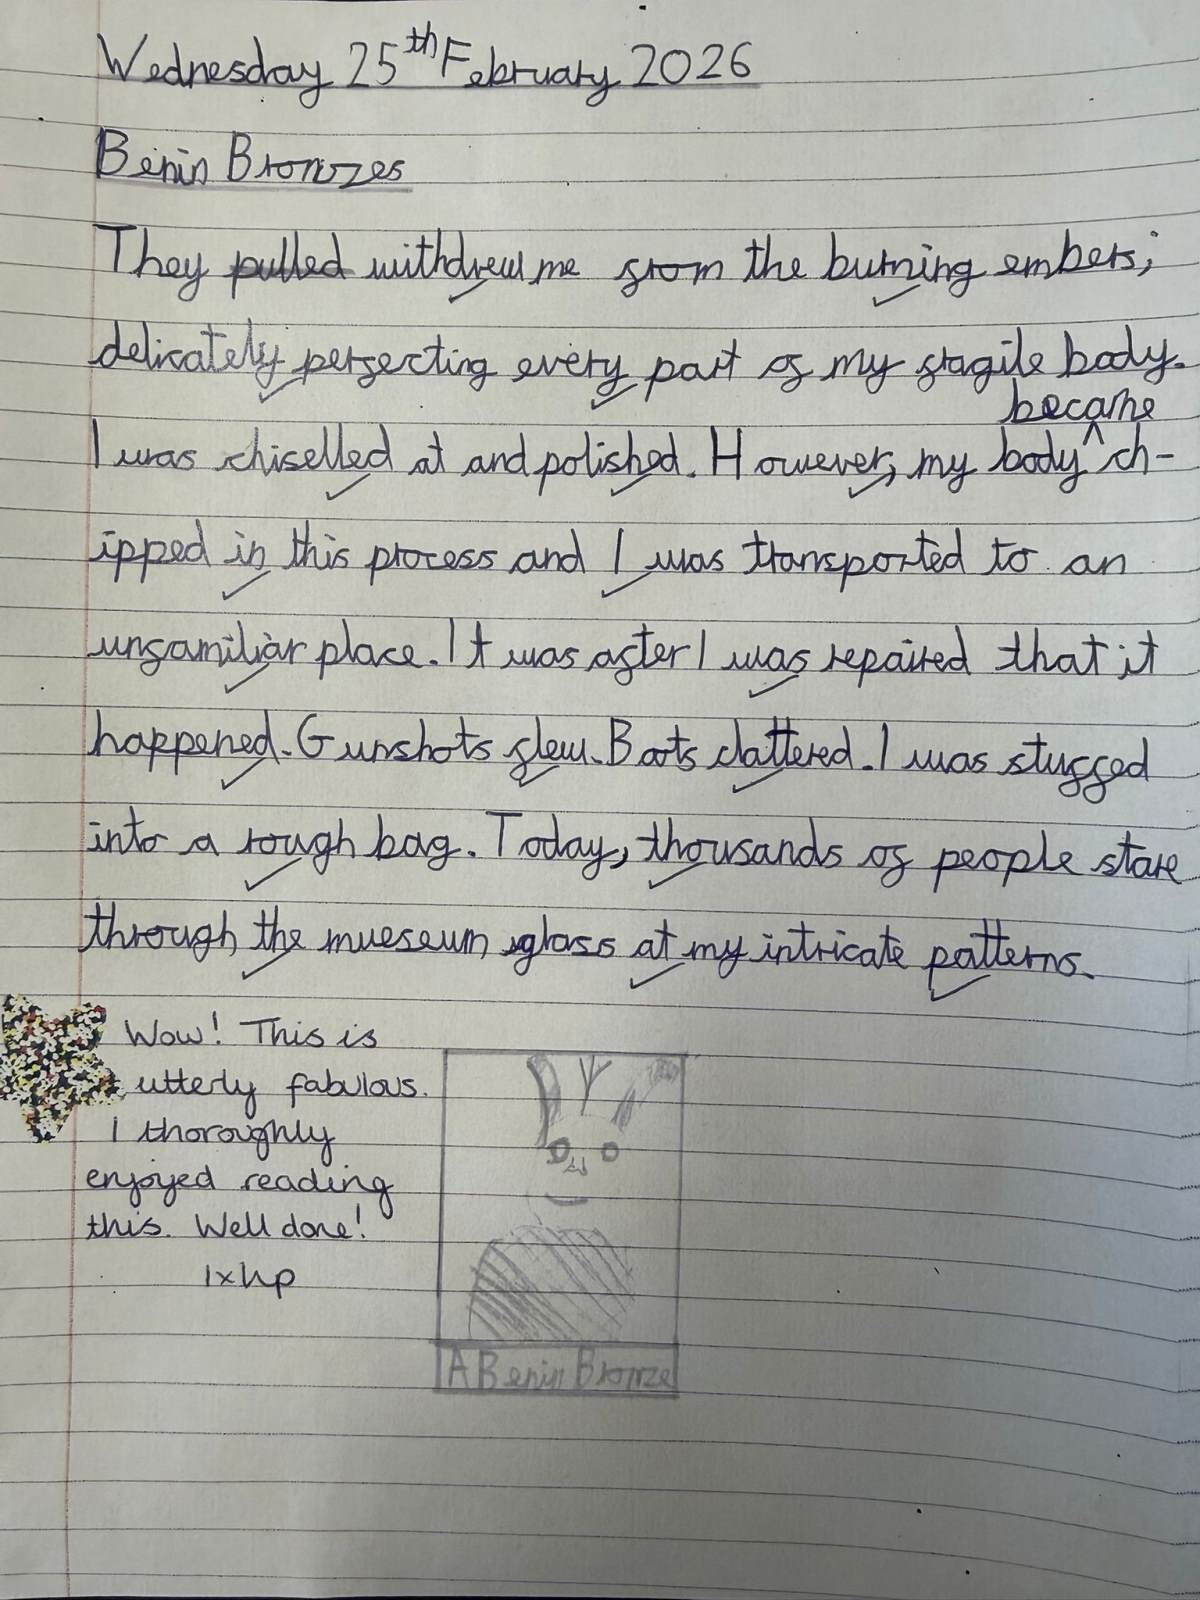 Wednesday 25th February 2026
Benin Bronzes
They pulled withdrew me from the burning embers;
delicately perfecting every part of my fragile body.
became
I was chiselled at and polished. However, my body ^ ch-
ipped in this process and I was transported to an
unfamiliar place. It was after I was repaired that it
happened. Gunshots flew. Boots clattered. I was stuffed
into a rough bag. Today, thousands of people stare
through the mueseum glass at my intricate patterns.
Wow! This is
utterly fabulous.
I thoroughly
enjoyed reading
this. Well done!
1xhp
A Benin Bronze